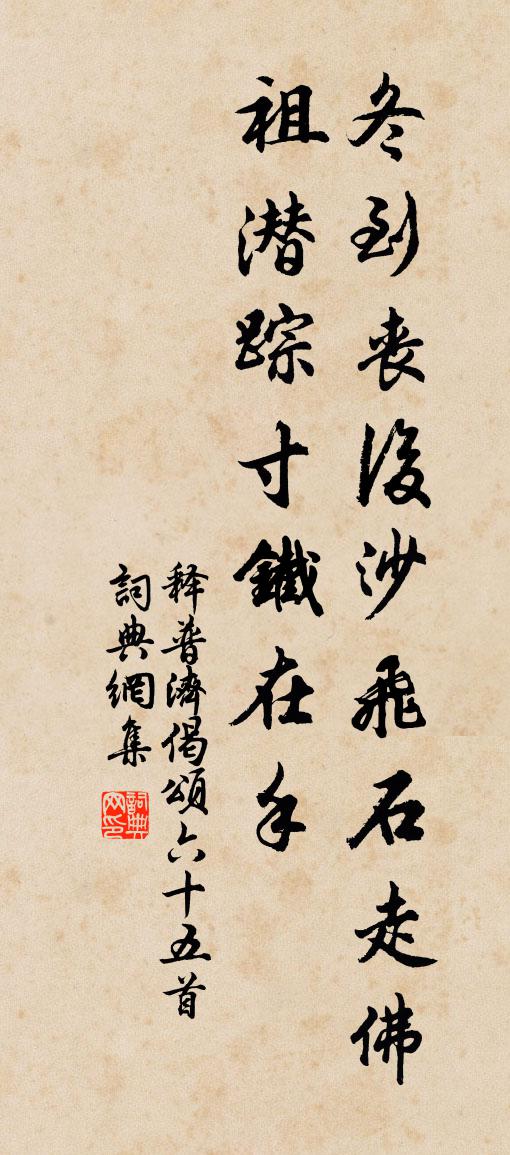 冬到丧後沙飛石走佛
祖潜踪寸鐵在手
释普濟偈頌六十五首
詞典網集
詞典
网印